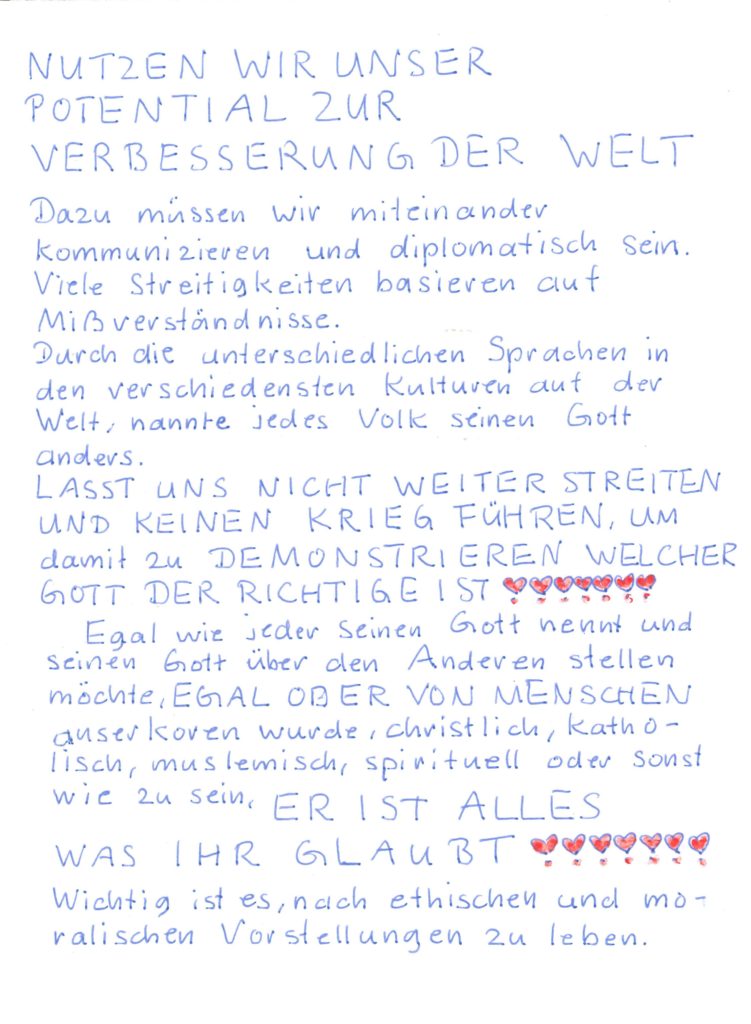 NUTZEN WIR UNSER
POTENTIAL ZUR
VERBESSERUNG DER WELT
Dazu müssen wir miteinander
kommunizieren und diplomatisch sein.
Viele Streitigkeiten basieren auf
Mißverständnisse.
Durch die unterschiedlichen Sprachen in
den verschiedensten Kulturen auf der
Welt, nannte jedes Volk seinen Gott
anders.
LASST UNS NICHT WEITER STREITEN
UND KEINEN KRIEG FÜHREN, UM
damit zu DEMONSTRIEREN WELCHER
GOTT DER RICHTIGE IST ❣❣❣❣❣❣❣
Egal wie jeder seinen Gott nennt und
seinen Gott über den Anderen stellen
möchte, EGAL OB ER VON MENSCHEN
auserkoren wurde, christlich, katho-
lisch, muslemisch, spirituell oder sonst
wie zu sein, ER IST ALLES
WAS IHR GLAUBT ❣❣❣❣❣❣❣
Wichtig ist es, nach ethischen und mo-
ralischen Vorstellungen zu leben.